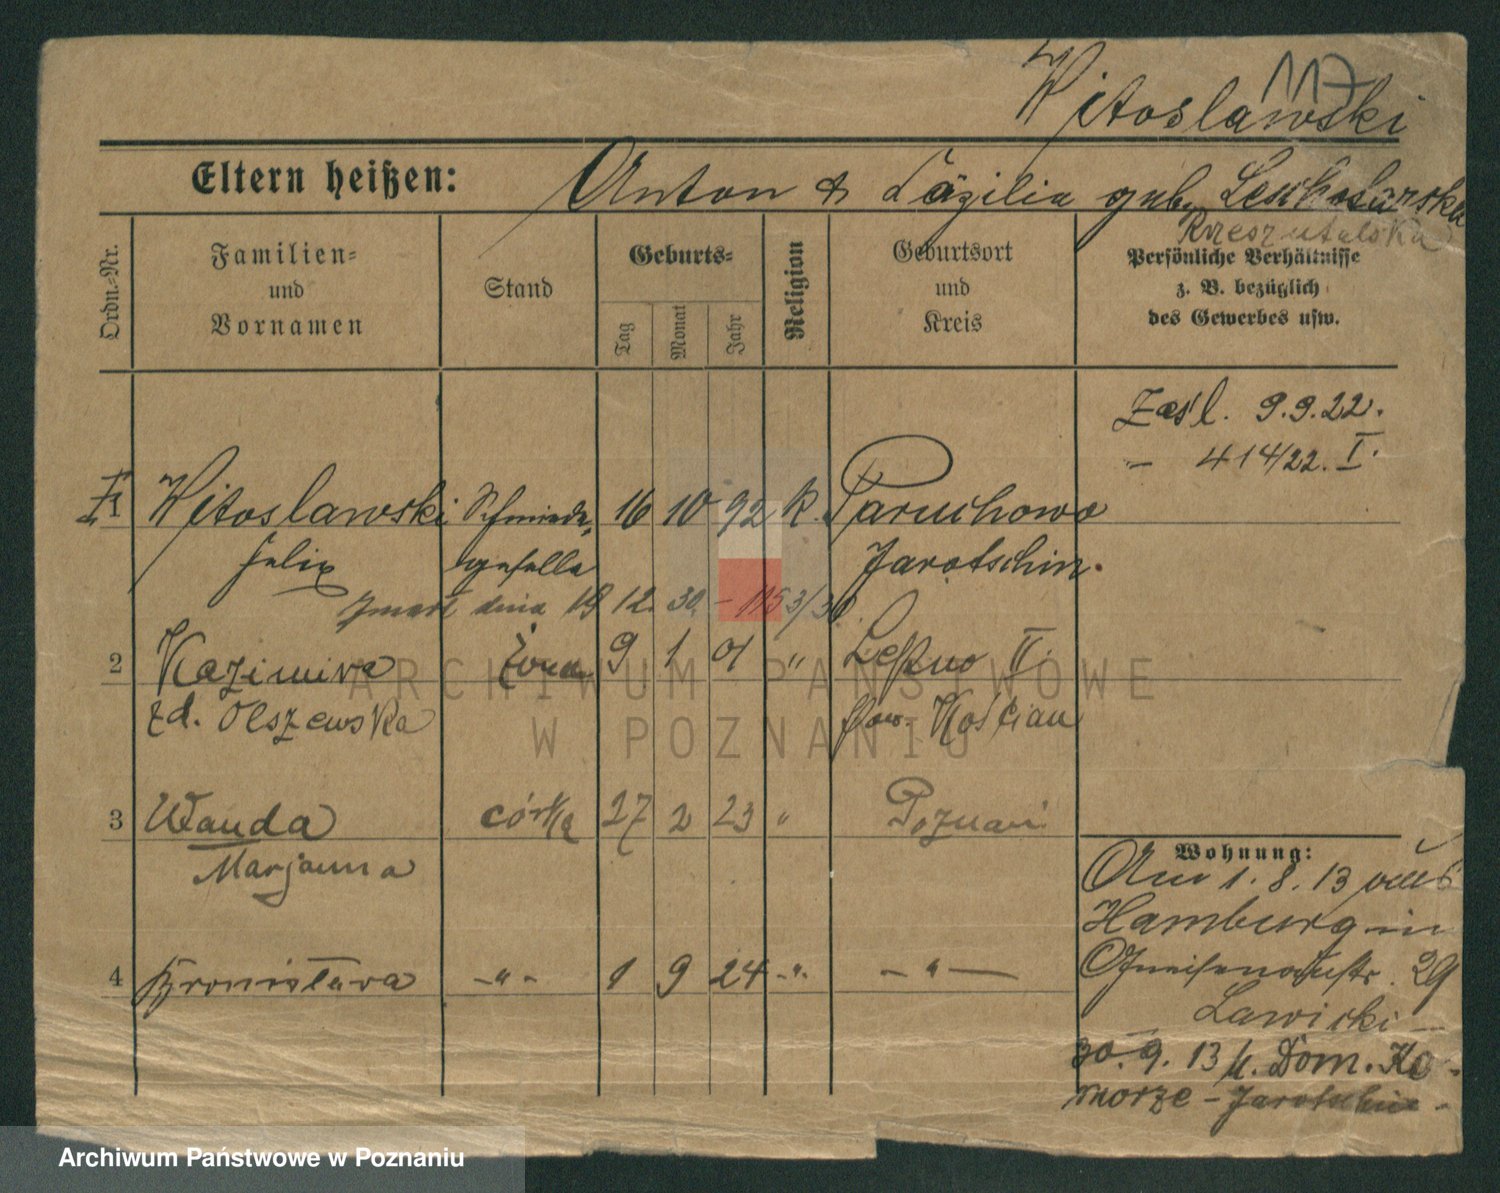 117
Witoslawski
Eltern heißen: Anton & Cäzilia geb.
Rzeszutelska
Ordn.-Nr.
Familien-
und
Vornamen
Stand
Geburts-
Tag
Monat
Jahr
Religion
Geburtsort
und
Kreis
Persönliche Verhältnisse
z. B. bezüglich
des Gewerbes usw.
9.9.22.
— 414/22. I.
1 Witoslawski Schmiede- 16 10 92 k. Paruchowo
Felix geselle Jarotschin.
zmarł dnia 19 12. 30. – 1153/30.
2 Kazimira żona 9 1 01 " II.
zd. Olszewska pow. Kościan
3 Wanda córka 27 2 23 " Poznań
Marjanna
4 Bronisława - " - 1 9 24 - " - - " -
Wohnung:
Am 1. 8. 13 von
Hamburg in
Gneisenaustr. 29
Lawicki —
30. 9. 13 n. Dom. Ko-
morze - Jarotschin -
ARCHIWUM PAŃSTWOWE
W POZNANIU
Archiwum Państwowe w Poznaniu